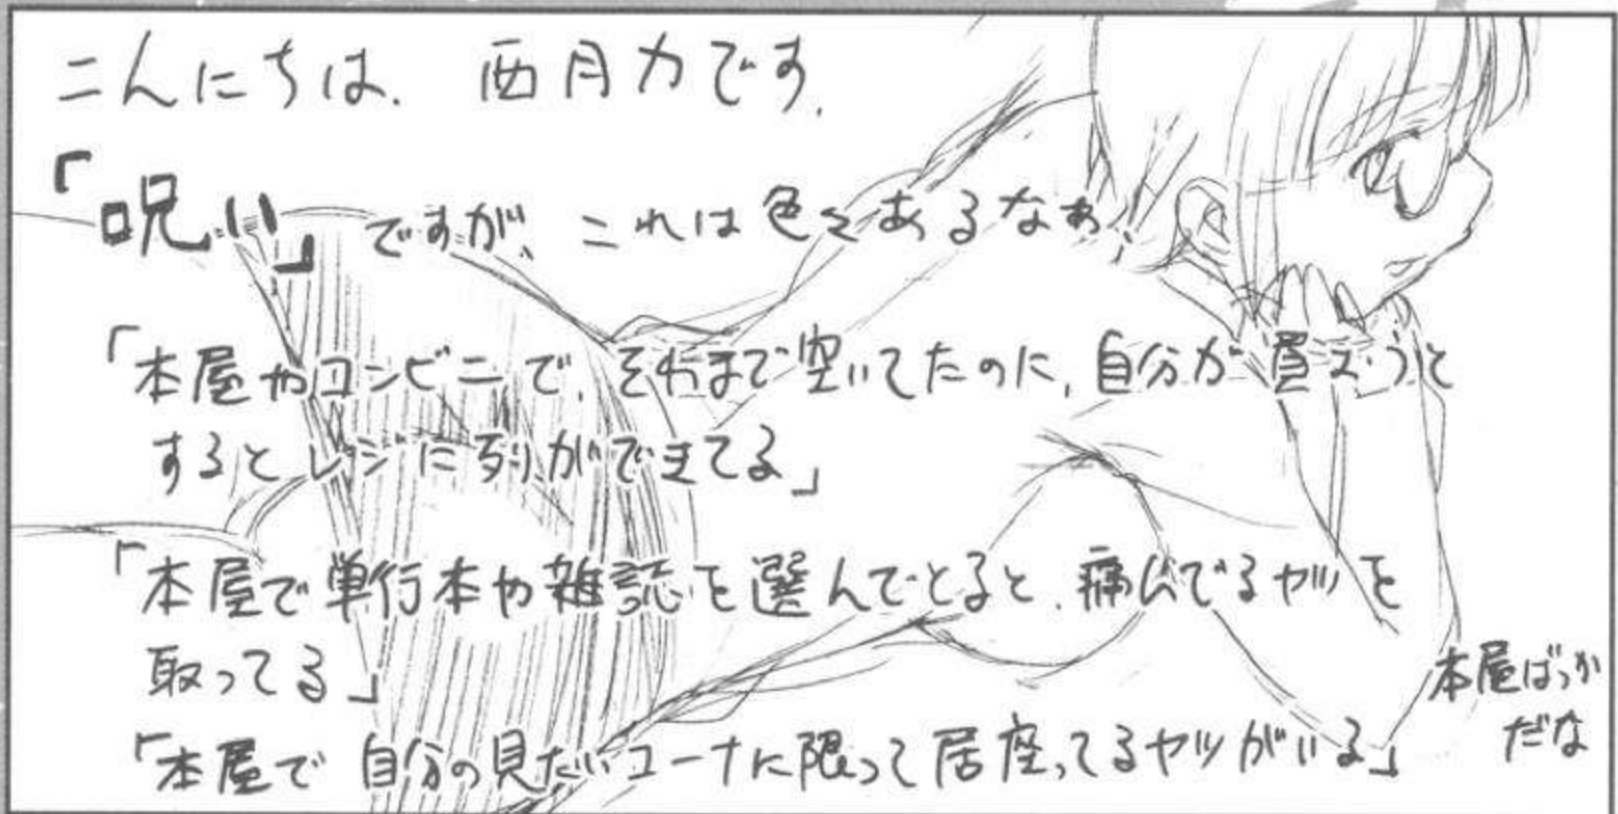 こんにちは、西月力です。
「呪い」ですが、これは色々あるなぁ、
「本屋やコンビニで、それまで空いてたのに、自分が買おうと
するとレジに列ができてる」
「本屋で単行本や雑誌を選んでとると、痛んでるヤツを
取ってる」
「本屋で自分の見たいコーナに限って居座ってるヤツがいる」
本屋ばっか
だな